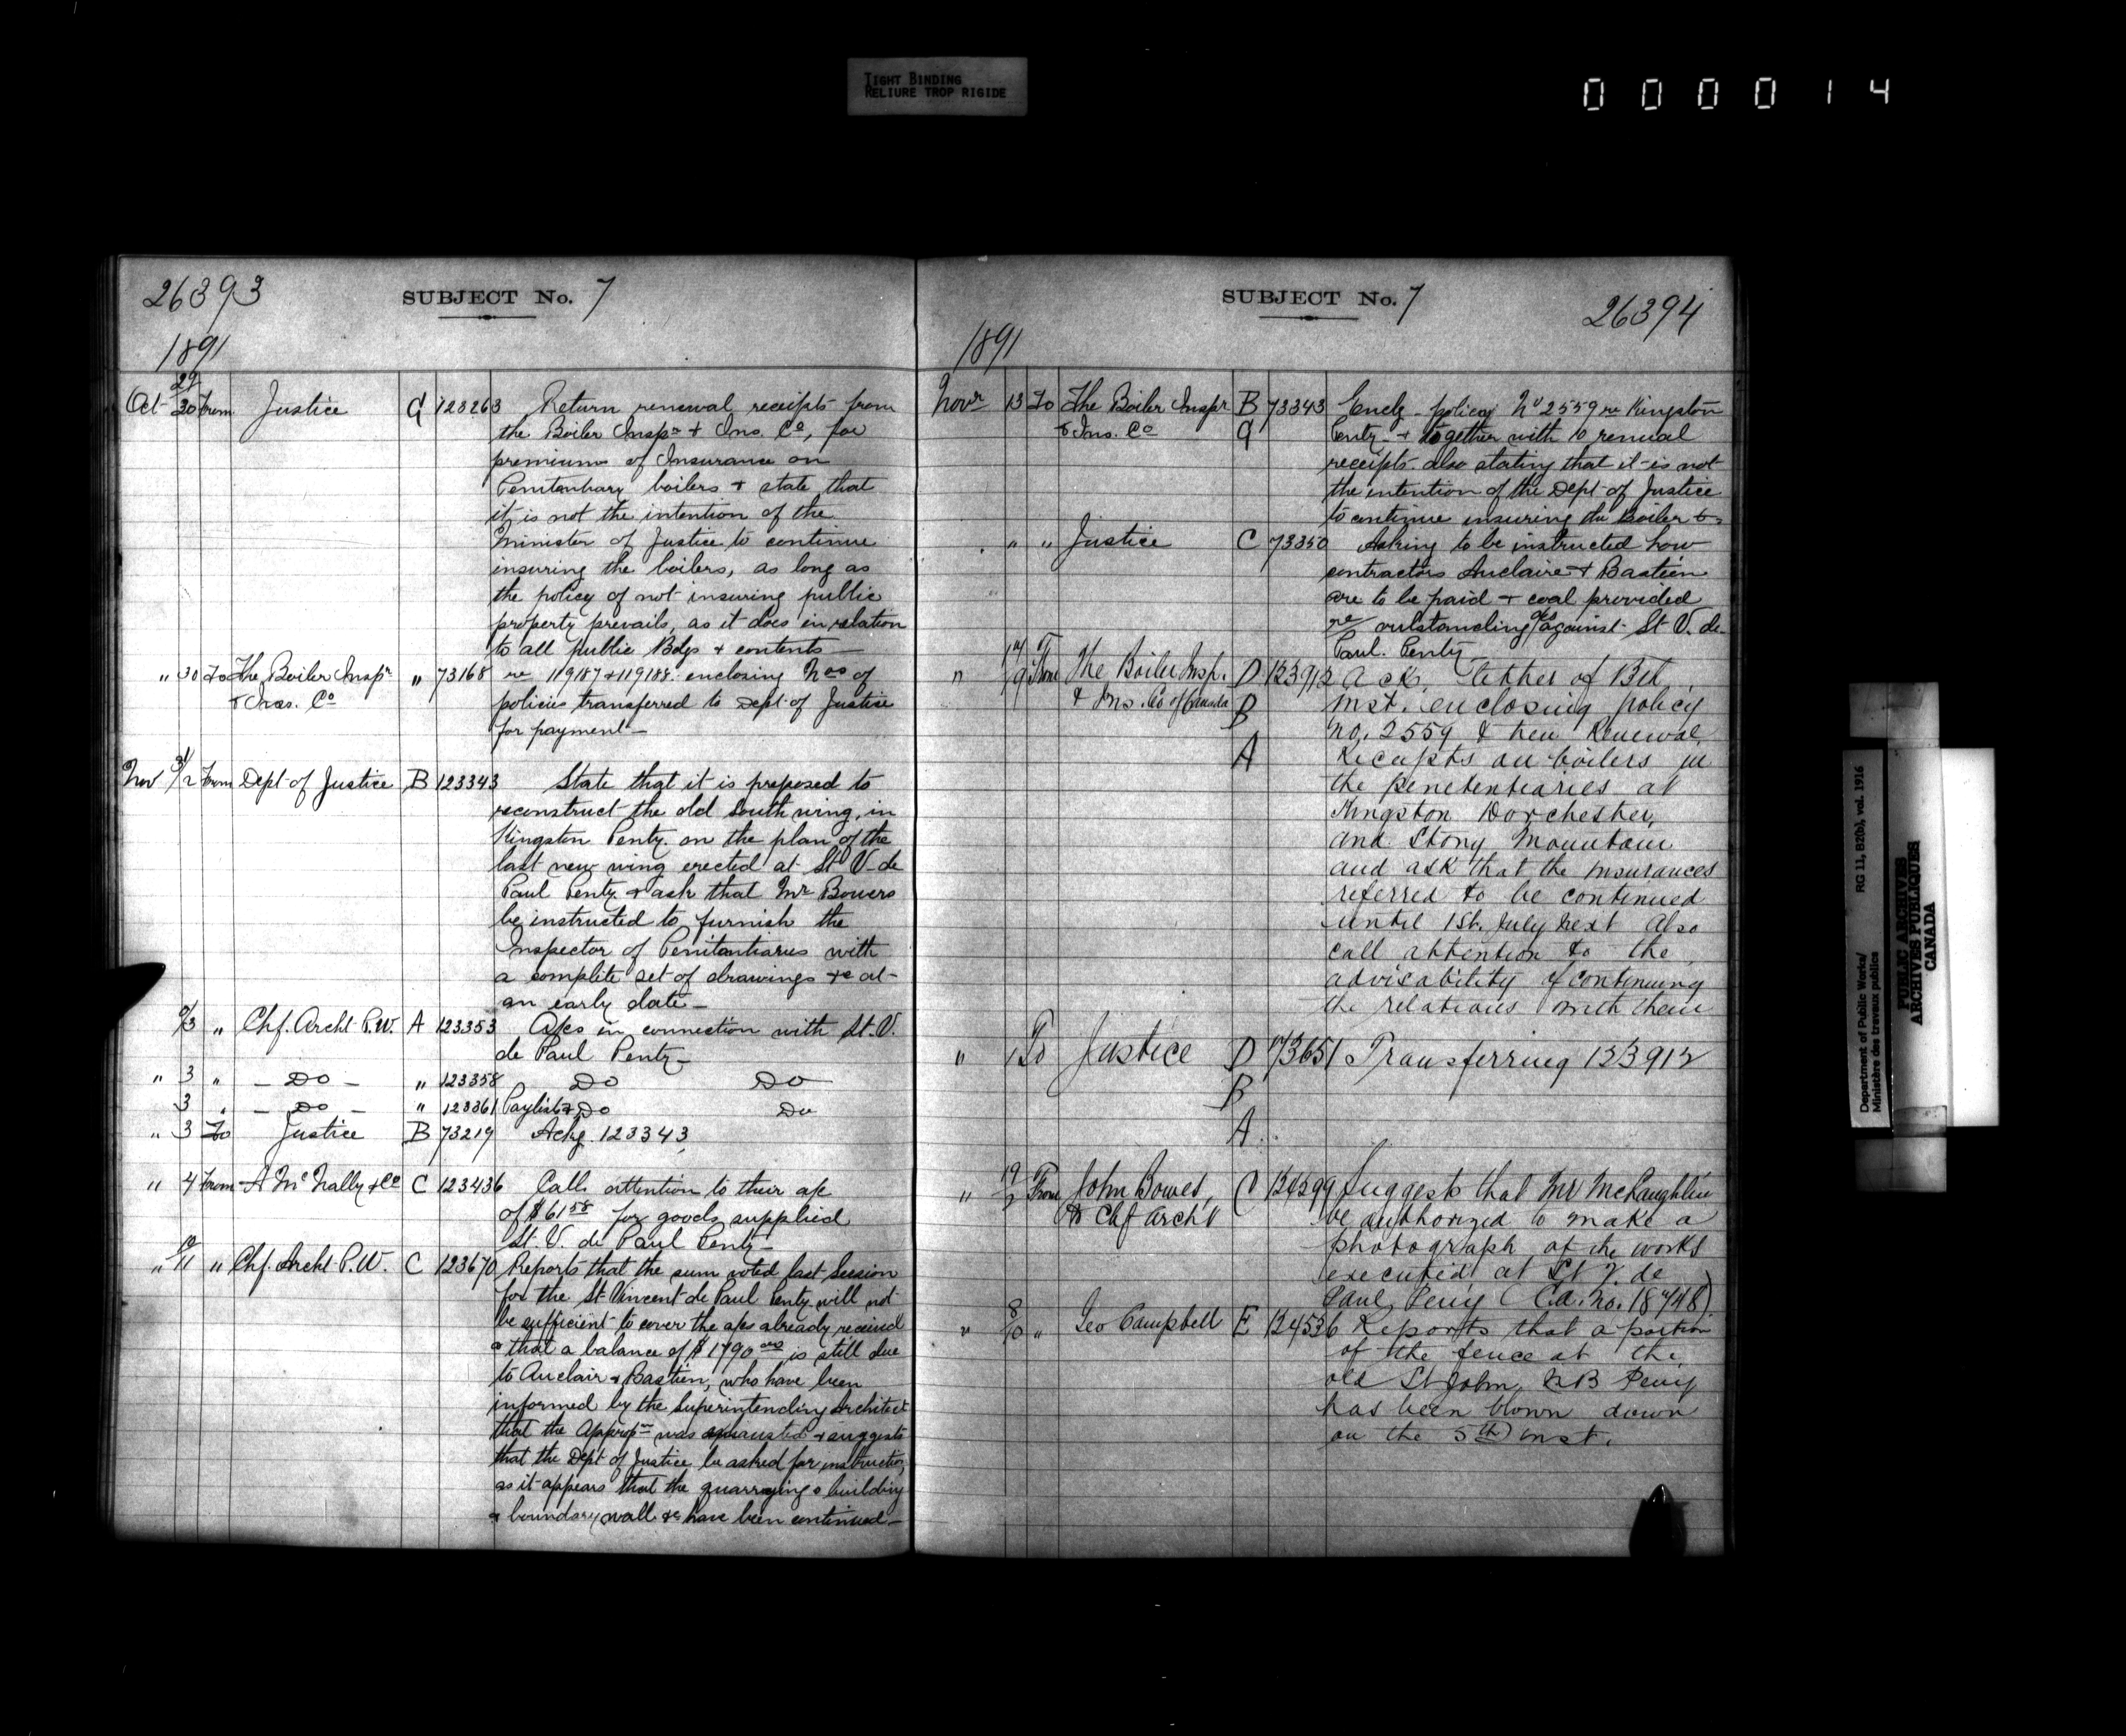 TIGHT BINDING
RELIURE TROP RIGIDE
000014
26393
SUBJECT No. 7
1891
Oct 29/30 From Justice G 123263 Return renewal receipts from
the Boiler Inspn & Ins. Co, for
premiums of Insurance on
Penitentiary boilers & state that
it is not the intention of the
Minister of Justice to continue
insuring the boilers, as long as
the policy of not insuring public
property prevails, as it does in relation
to all public Bdgs & contents —
" 30 To The Boiler Inspn " 73168 re 119187 & 119188. enclosing Nos of
& Ins. Co policies transferred to Dept of Justice
for payment —
Nov 31/2 From Dept of Justice B 123343 State that it is proposed to
reconstruct the old South wing, in
Kingston Penty. on the plan of the
last new wing erected at St V. de
Paul Penty & ask that Mr Bowers
be instructed to furnish the
Inspector of Penitentiaries with
a complete set of drawings &c at
an early date —
2/3 " Chf. Archt P.W. A 123353 A/cs in connection with St. V.
de Paul Penty —
" 3 " — Do — " 123358 Do Do
3 " — Do — " 123361 Paylist & Do Do
" 3 To Justice B 73219 Ackg 123343
" 4 From A McNally & Co C 123436 Calls attention to their a/c
of $61 58 for goods supplied
St. V. de Paul Penty —
" 10/11 " Chf. Archt P.W. C 123670 Reports that the sum voted last Session
for the St Vincent de Paul Penty will not
be sufficient to cover the a/cs already received
& that a balance of $1790 is still due
to Auclair & Bastien, who have been
informed by the Superintending Architect
that the Appropn was exhausted & suggests
that the Dept of Justice be asked for instructions
as it appears that the quarrying & building
a boundary wall &c have been continued —
SUBJECT No. 7
26394
1891
Novr 13 To The Boiler Inspn B 73343 Enclg policy No 2559 re Kingston
& Ins. Co G Penty — & together with 10 renual
receipts. also stating that it is not
the intention of the Dept of Justice
to continue insuring the Boiler
" " Justice C 73350 Asking to be instructed how
contractors Auclaire & Bastien
are to be paid & coal provided
re outstanding a/cs against St V. de
Paul. Penty
" 14/19 From The Boiler Insp. D 123912 Ack. letter of 13th
& Ins. Co of Canada B inst. enclosing policy
no. 2559 & ten Renewal
A Receipts on boilers in
the penetentiaries at
Kingston Dorchester,
and Stony Mountain
and ask that the insurances
referred to be continued
until 1st. July next Also
call attention to the
advisability of continuing
the relations with them
" To Justice D 73651 Transferring 123912
B
A
" 19/ From John Bowes, C Suggests that Mr McLaughlin
Chf Archt be authorized to make a
photograph of the works
executed at St V. de
Paul Peniy (Ca. No. 18748)
" 8/10 " Geo Campbell E 124536 Reports that a portion
of the fence at the
old St John NB Peniy
has been blown down
on the 5th inst.
Department of Public Works/
Ministère des travaux publics
RG 11, B2(b), vol. 1916
PUBLIC ARCHIVES
ARCHIVES PUBLIQUES
CANADA